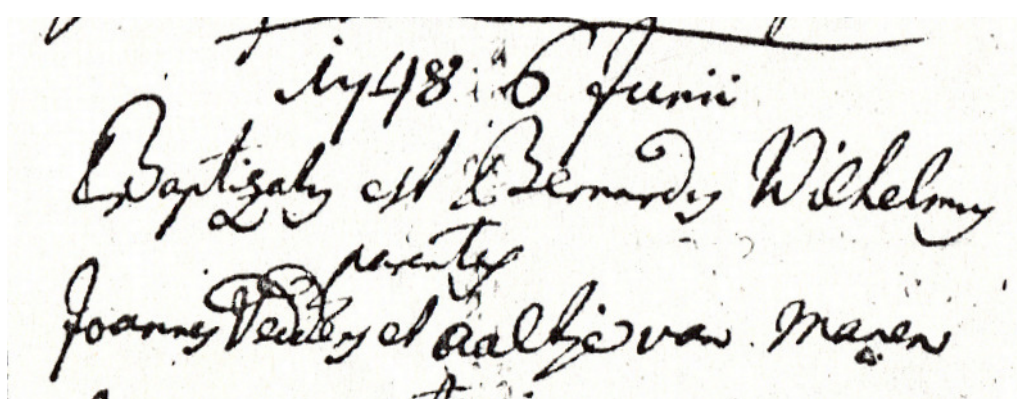 1748 6 Junii
Baptizatus est Bernardus Wilhelmus
parentes
Joannes et Aaltje van Maren